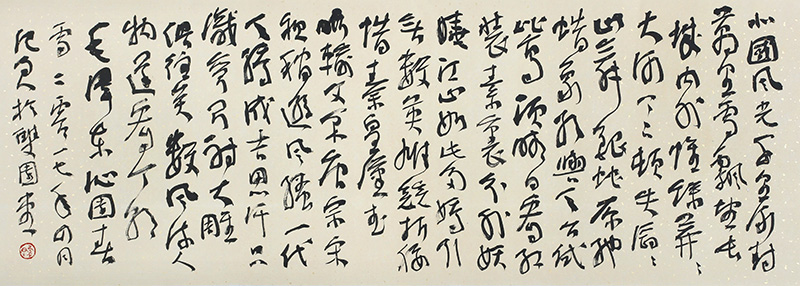 北國風光千里冰封
萬里雪飄望長
城内外惟餘莽〻
大河上下頓失滔〻
山舞銀蛇原馳
蜡象欲與天公試
比高須晴日看紅
裝素裹分外妖
嬈江山如此多嬌引
無數英雄競折腰
惜秦皇漢武
略輸文采唐宗宋
祖稍遜風騷一代
天驕成吉思汗只
識彎弓射大雕
俱往矣數風流人
物還看今朝
毛澤東沁園春
雪二零一七年四月
於雙園